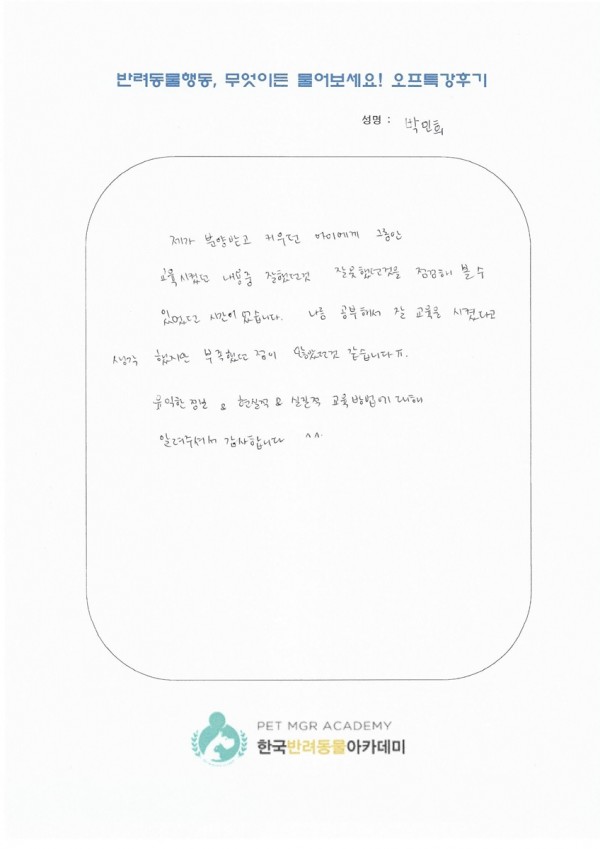 반려동물행동, 무엇이든 물어보세요! 오프특강후기
성명 : 박민희
제가 분양받고 키우던 아이에게 그동안
교육시켰던 내용중 잘했던것 잘못했던것을 점검해 볼 수
있었던 시간이였습니다. 나름 공부해서 잘 교육을 시켰다고
생각 했지만 부족했던 점이 많았던것 같습니다ㅠ.
유익한 정보 요 현실적 요 실질적 교육방법에 대해
알려주셔서 감사합니다 ^^.
PET MGR ACADEMY
한국반려동물아카데미